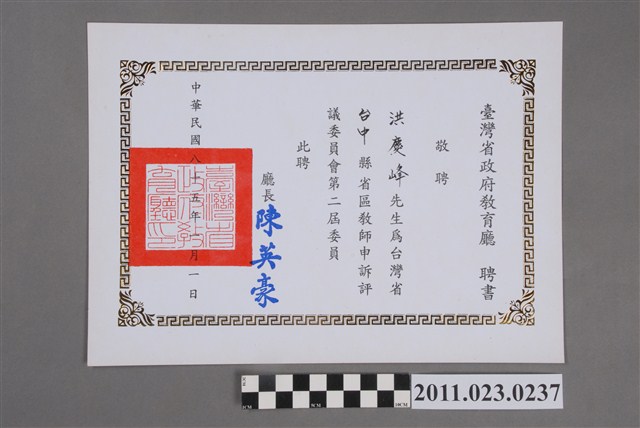 臺灣省政府教育廳 聘書
敬聘
洪慶峰先生為台灣省
台中縣省區教師申訴評
議委員會第二屆委員
此聘
廳長
陳英豪
臺灣省
政府教
育廳印
中華民國八十五年 月一日
2011.023.0237